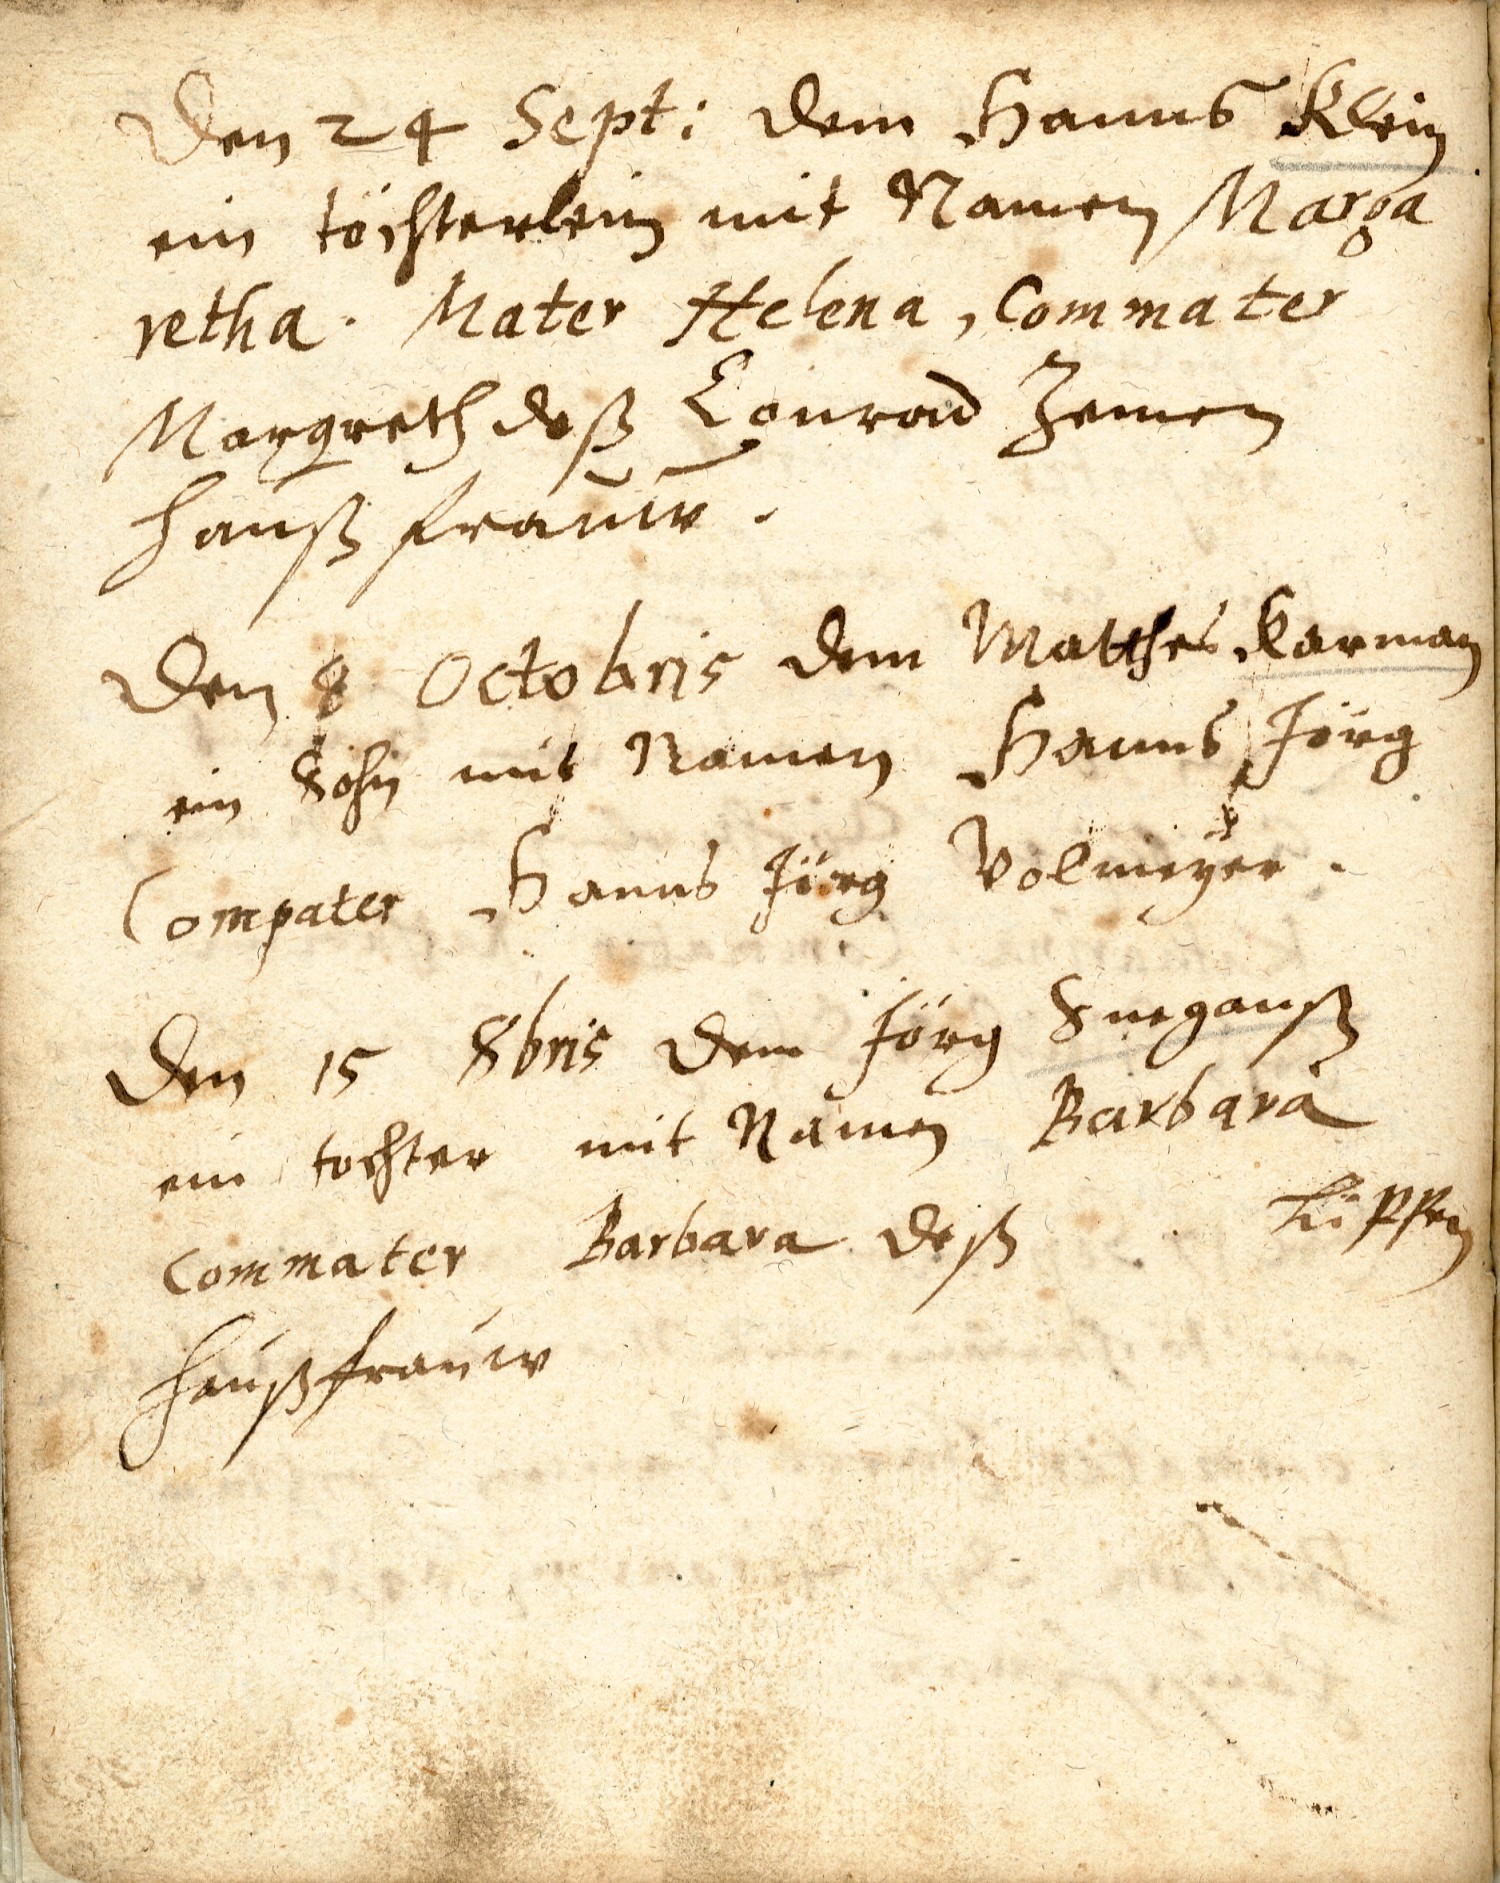 Den 24 Sept: dem Hanns Klein
ein töchterlein mit Namen Marga
retha. Mater Helena, Commater
Margreth deß Conrad Zemen
hauß frauw.
Den 8 Octobris dem Matthes Karman
ein Sohn mit Namen Hanns Jörg
Compater Hanns Jörg Volmeÿer.
Den 15 8bris dem Jörg
ein tochter mit Namen Barbara
Commater Barbara deß Lippen
haußfrauw